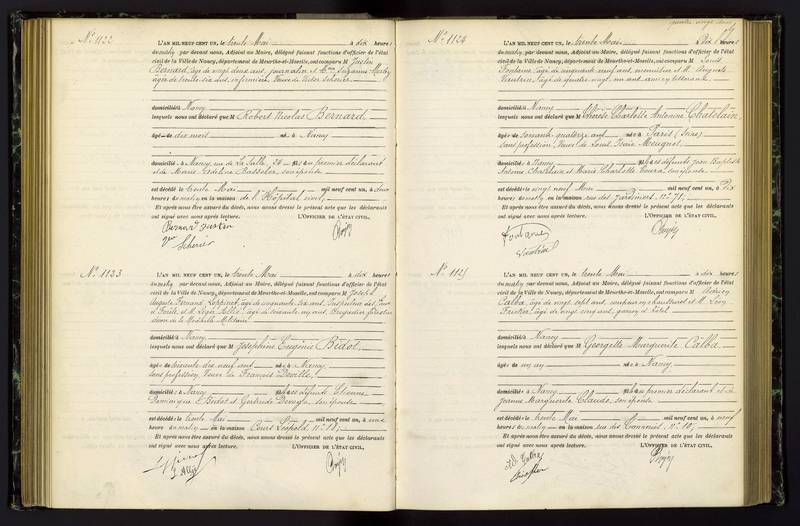 N° 1122
L'AN MIL NEUF CENT UN, le trente Mai à dix heures
du matin par devant nous, Adjoint au Maire, délégué faisant fonctions d'officier de l'état
civil de la Ville de Nancy, département de Meurthe-et-Moselle, ont comparu M Justin
Bernard, âgé de vingt deux ans, journalier et Mme Suzanne
âgée de trente six ans, infirmière, Veuve de Victor Scherier
domiciliés à Nancy
lesquels nous ont déclaré que M Robert Nicolas Bernard
âgé de dix mois né à Nancy
domicilié à Nancy, rue de La Salle, 24 fils au premier déclarant
et de Marie Adeline Bassoler, son épouse
est décédé le trente Mai mil neuf cent un, à deux
heures du matin en la maison de l'Hôpital civil,
Et après nous être assuré du décès, nous avons dressé le présent acte que les déclarants
ont signé avec nous après lecture. L'OFFICIER DE L'ÉTAT CIVIL,
Bernard Justin
Vve Scherier
N° 1123
L'AN MIL NEUF CENT UN, le trente Mai à dix heures
du matin par devant nous, Adjoint au Maire, délégué faisant fonctions d'officier de l'état
civil de la Ville de Nancy, département de Meurthe-et-Moselle, ont comparu M Joseph
Auguste Fernand âgé de cinquante six ans, Inspecteur des Eaux
et Forêts, et M. âgé de soixante ans, Brigadier
de la Médaille Militaire
domiciliés à Nancy
lesquels nous ont déclaré que M Joséphine Eugénie Bidot,
âgée de soixante dix neuf ans née à Nancy,
sans profession, Veuve de François Deville,
domiciliée à Nancy fille des défunts Etienne
Dominique Bidot et Gertrude son épouse
est décédée le trente Mai mil neuf cent un, à une
heure du matin en la maison Cours Léopold, n° 18,
Et après nous être assuré du décès, nous avons dressé le présent acte que les déclarants
ont signé avec nous après lecture. L'OFFICIER DE L'ÉTAT CIVIL,
N° 1124
L'AN MIL NEUF CENT UN, le trente Mai à dix heures
du matin par devant nous, Adjoint au Maire, délégué faisant fonctions d'officier de l'état
civil de la Ville de Nancy, département de Meurthe-et-Moselle, ont comparu M Louis
Fontaine, âgé de cinquante neuf ans, menuisier et M. Auguste
âgé de quatre vingt un ans
domiciliés à Nancy
lesquels nous ont déclaré que M Thérèse Charlotte Antonine Chatelain,
âgée de soixante quatorze ans née à Paris (Seine)
sans profession, Veuve de Louis Isaïe Meugnot
domiciliée à Nancy fille des défunts Jean Baptiste
Antoine Chatelain et Marie Charlotte son épouse
est décédée le vingt neuf Mai mil neuf cent un, à dix
heures du matin en la maison rue des Jardiniers, n° 71,
Et après nous être assuré du décès, nous avons dressé le présent acte que les déclarants
ont signé avec nous après lecture. L'OFFICIER DE L'ÉTAT CIVIL,
Fontaine
N° 1125
L'AN MIL NEUF CENT UN, le trente Mai à dix heures
du matin par devant nous, Adjoint au Maire, délégué faisant fonctions d'officier de l'état
civil de la Ville de Nancy, département de Meurthe-et-Moselle, ont comparu M Adrien
Calba, âgé de vingt sept ans, et M. Léon
âgé de vingt cinq ans, garçon d'hôtel
domiciliés à Nancy
lesquels nous ont déclaré que M Georgette Marguerite Calba,
âgée de un an née à Nancy
domiciliée à Nancy fille au premier déclarant et de
Jeanne Marguerite Claude, son épouse
est décédée le trente Mai mil neuf cent un, à neuf
heures du matin en la maison rue des Tanneries, n° 10,
Et après nous être assuré du décès, nous avons dressé le présent acte que les déclarants
ont signé avec nous après lecture. L'OFFICIER DE L'ÉTAT CIVIL,